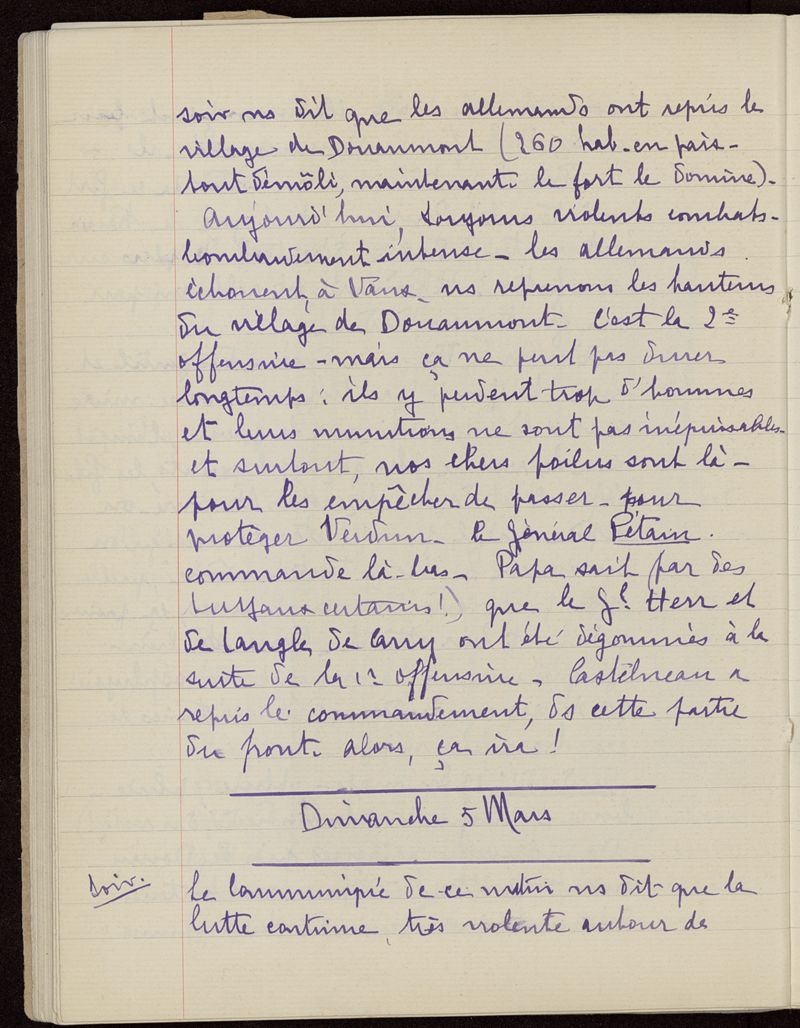 soir ns dit que les allemands ont repris le
village de Douaumont (260 hab. en paix -
tout démoli, maintenant. le fort le domine) -
Aujourd'hui, toujours violents combats -
bombardement intense - les allemands
échouent, à Vaux - ns reprenons les hauteurs
du village de Douaumont - C'est la 2e
offensive - mais ça ne peut pas durer
longtemps : ils y perdent trop d'hommes
et leurs munitions ne sont pas inépuisables -
et surtout, nos chers poilus sont là -
pour les empêcher de passer - pour
protéger Verdun - le général Pétain.
commande là-bas - Papa sait (par des
tuyaux certains!) que le Gl Herr et
de Langle de Cary ont été dégommés à la
suite de la 1re offensive - Castelneau a
repris le commandement, ds cette partie
du front. alors, ça ira !
Dimanche 5 Mars
Soir. Le Communiqué de ce matin ns dit que la
lutte continue, très violente autour de